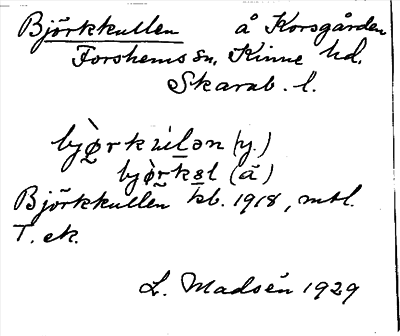 Björkkullen å Korsgården
Forshems sn. Kinne hd.
Skarab. l.
bjò̲rkulən (y.)
bjòrksl (ä)
Björkkullen kb. 1918, mtl.
T. ek.
L. Madsén 1929